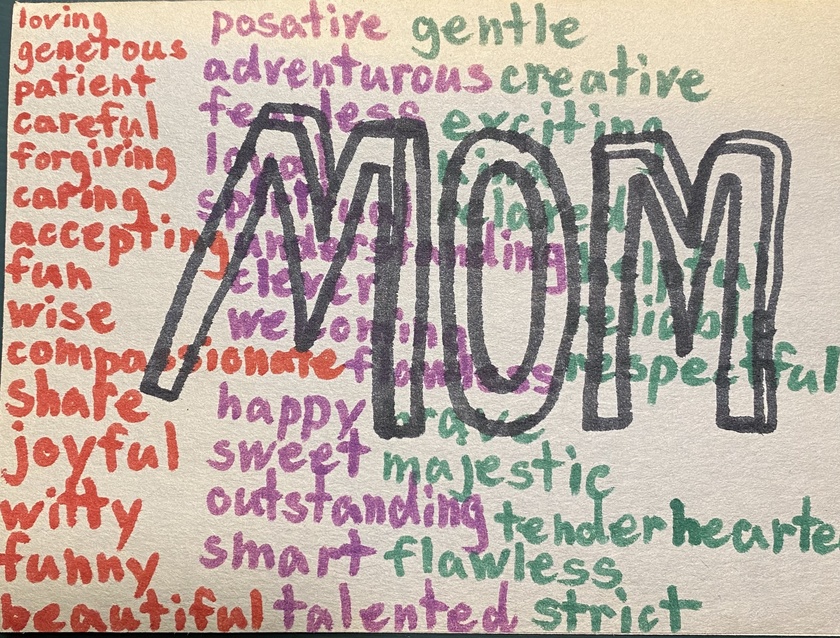 loving
generous
patient
careful
forgiving
caring
accepting
fun
wise
compassionate
share
joyful
witty
funny
beautiful
posative
adventurous
fearless
loyal
spiritual
understanding
clever
welcoming
flawless
happy
sweet
outstanding
smart
talented
gentle
creative
exciting
kind
relaxed
helpful
reliable
respectful
brave
majestic
tenderhearte
flawless
strict
MOM